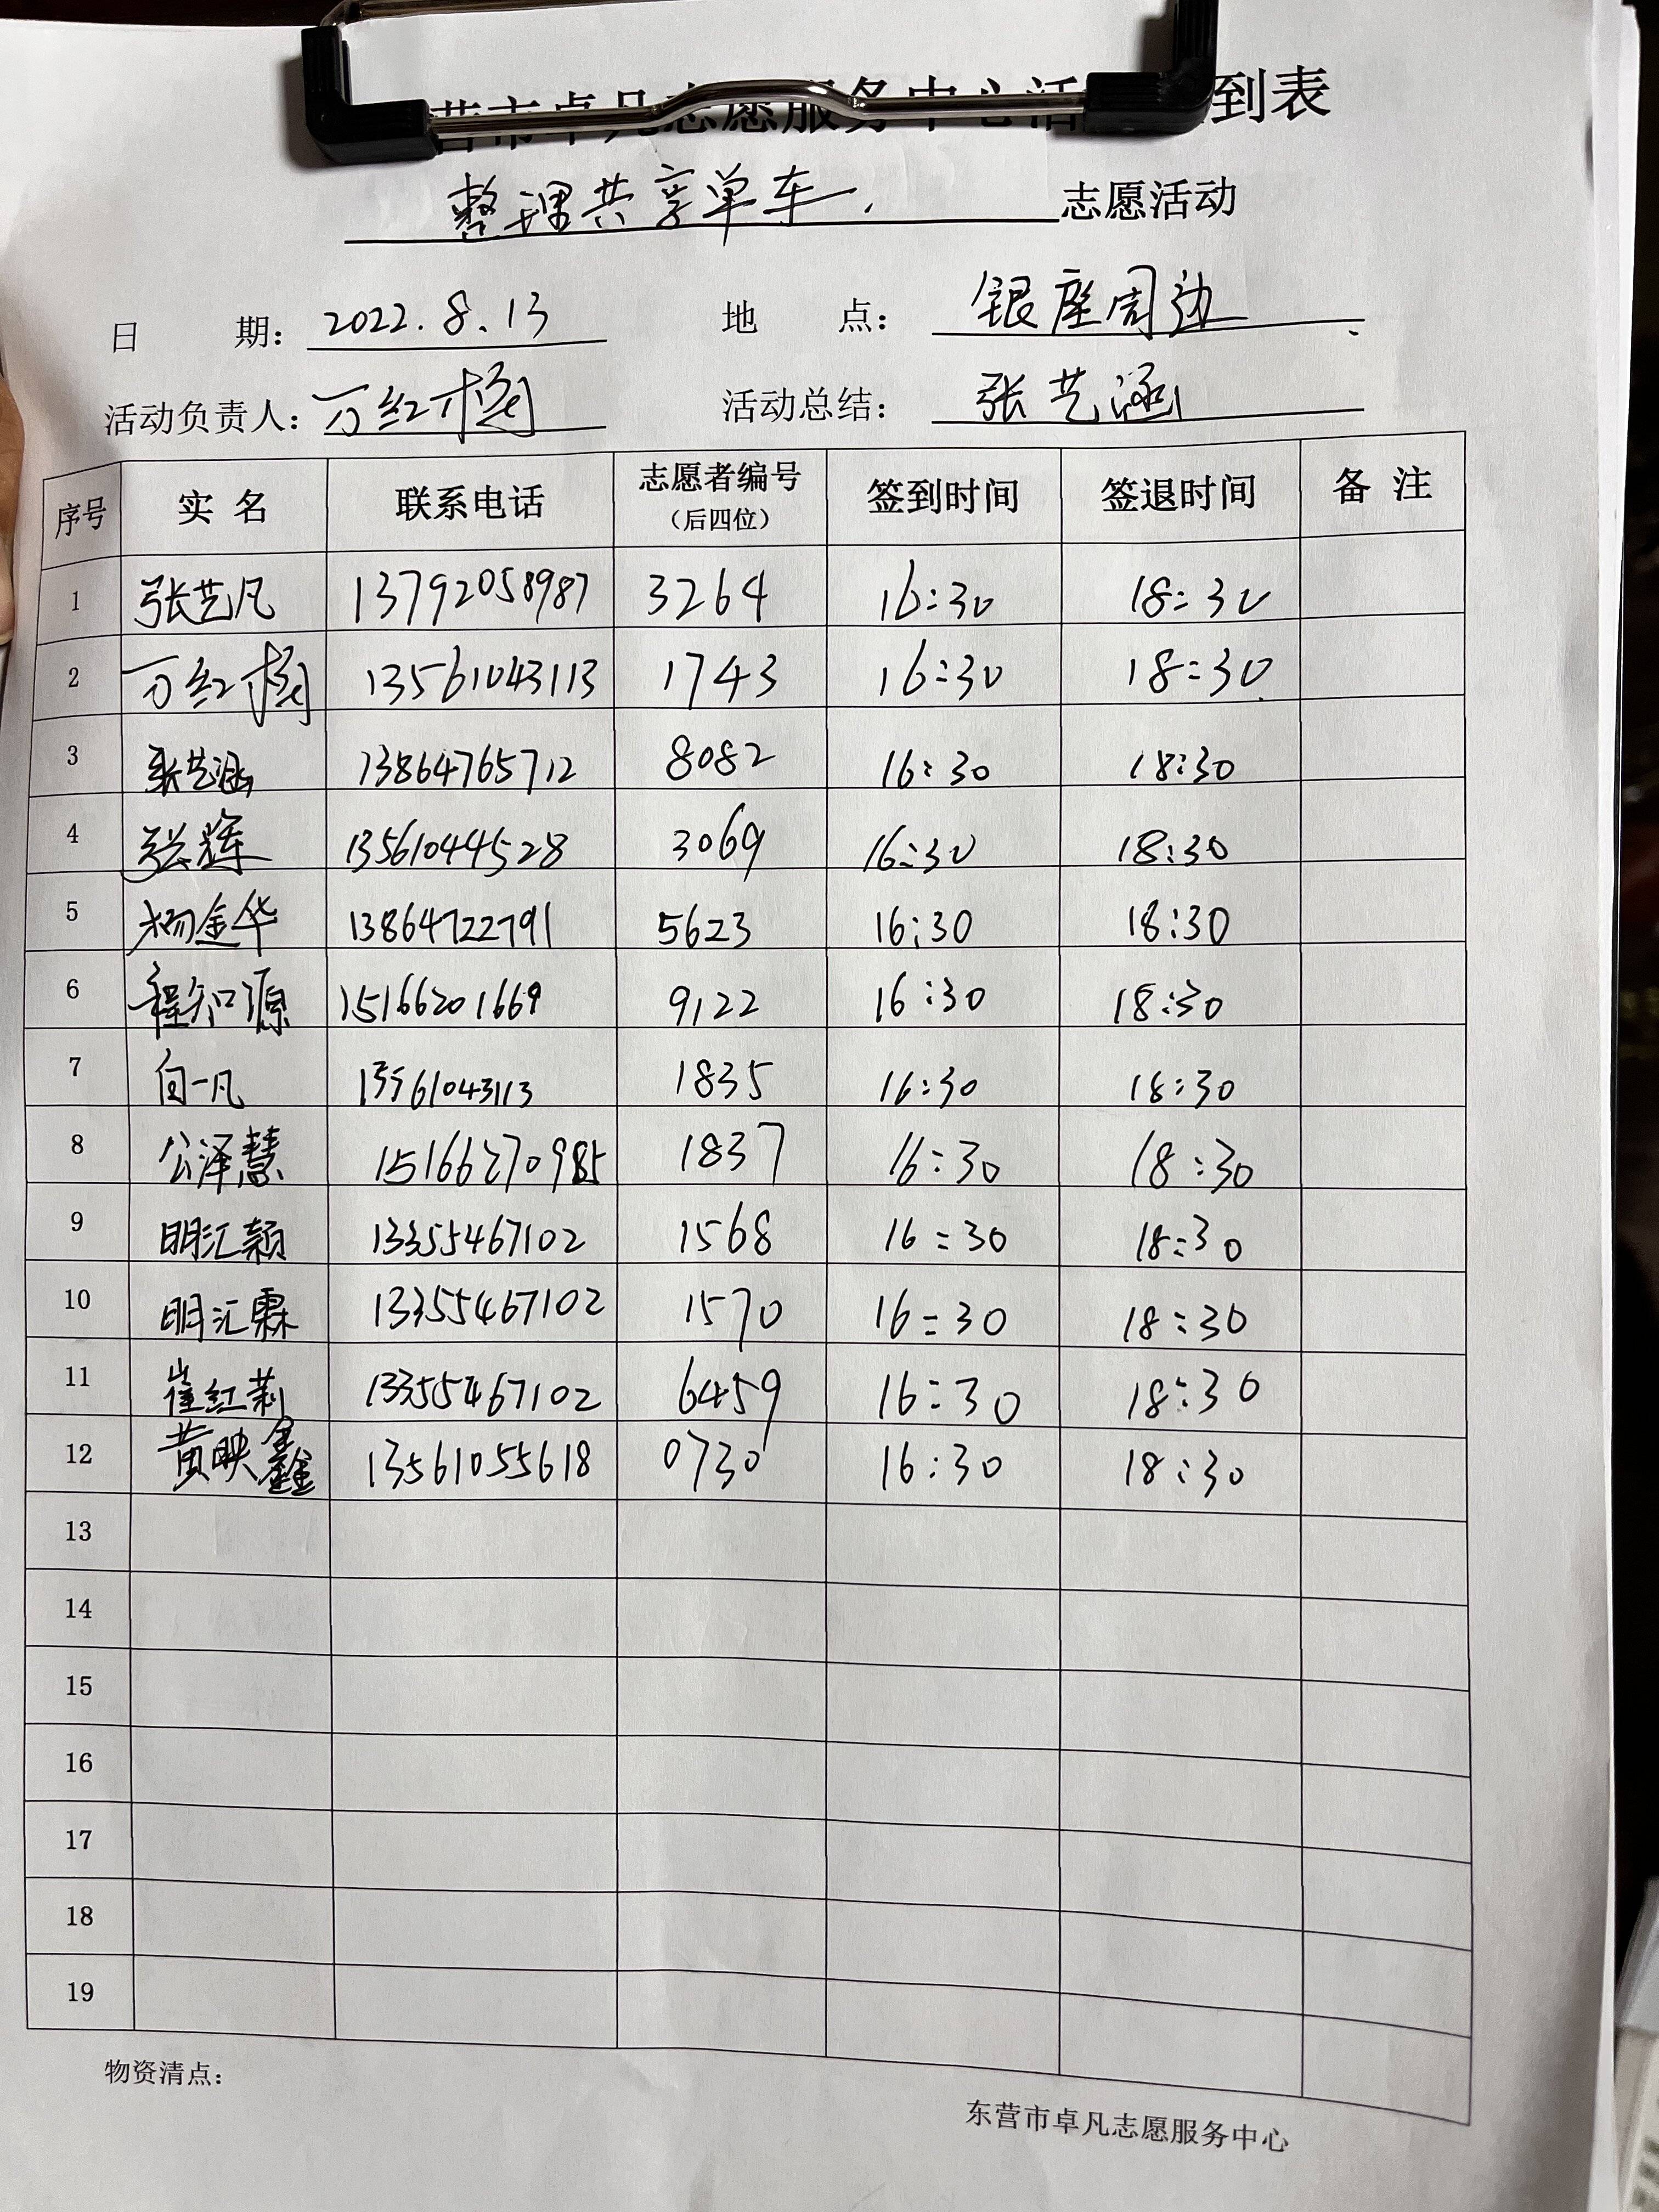 营市卓凡志愿服务中心活 到表
整理共享单车. 志愿活动
日 期: 2022.8.13 地 点: 银座周边
活动负责人: 万红梅 活动总结: 张艺涵
序号 实名 联系电话 志愿者编号（后四位） 签到时间 签退时间 备注
1 张艺凡 13792058987 3264 16:30 18:30
2 万红梅 13561043113 1743 16:30 18:30
3 张艺涵 13864765712 8082 16:30 18:30
4 张辉 13561044528 3069 16:30 18:30
5 杨金华 13864722791 5623 16:30 18:30
6 程知源 15166201669 9122 16:30 18:30
7 白一凡 13561043113 1835 16:30 18:30
8 公泽慧 15166270985 1837 16:30 18:30
9 明汇颖 13355467102 1568 16:30 18:30
10 明汇霖 13355467102 1570 16:30 18:30
11 崔红莉 13355467102 6459 16:30 18:30
12 黄映鑫 13561055618 0730 16:30 18:30
13
14
15
16
17
18
19
物资清点:
东营市卓凡志愿服务中心